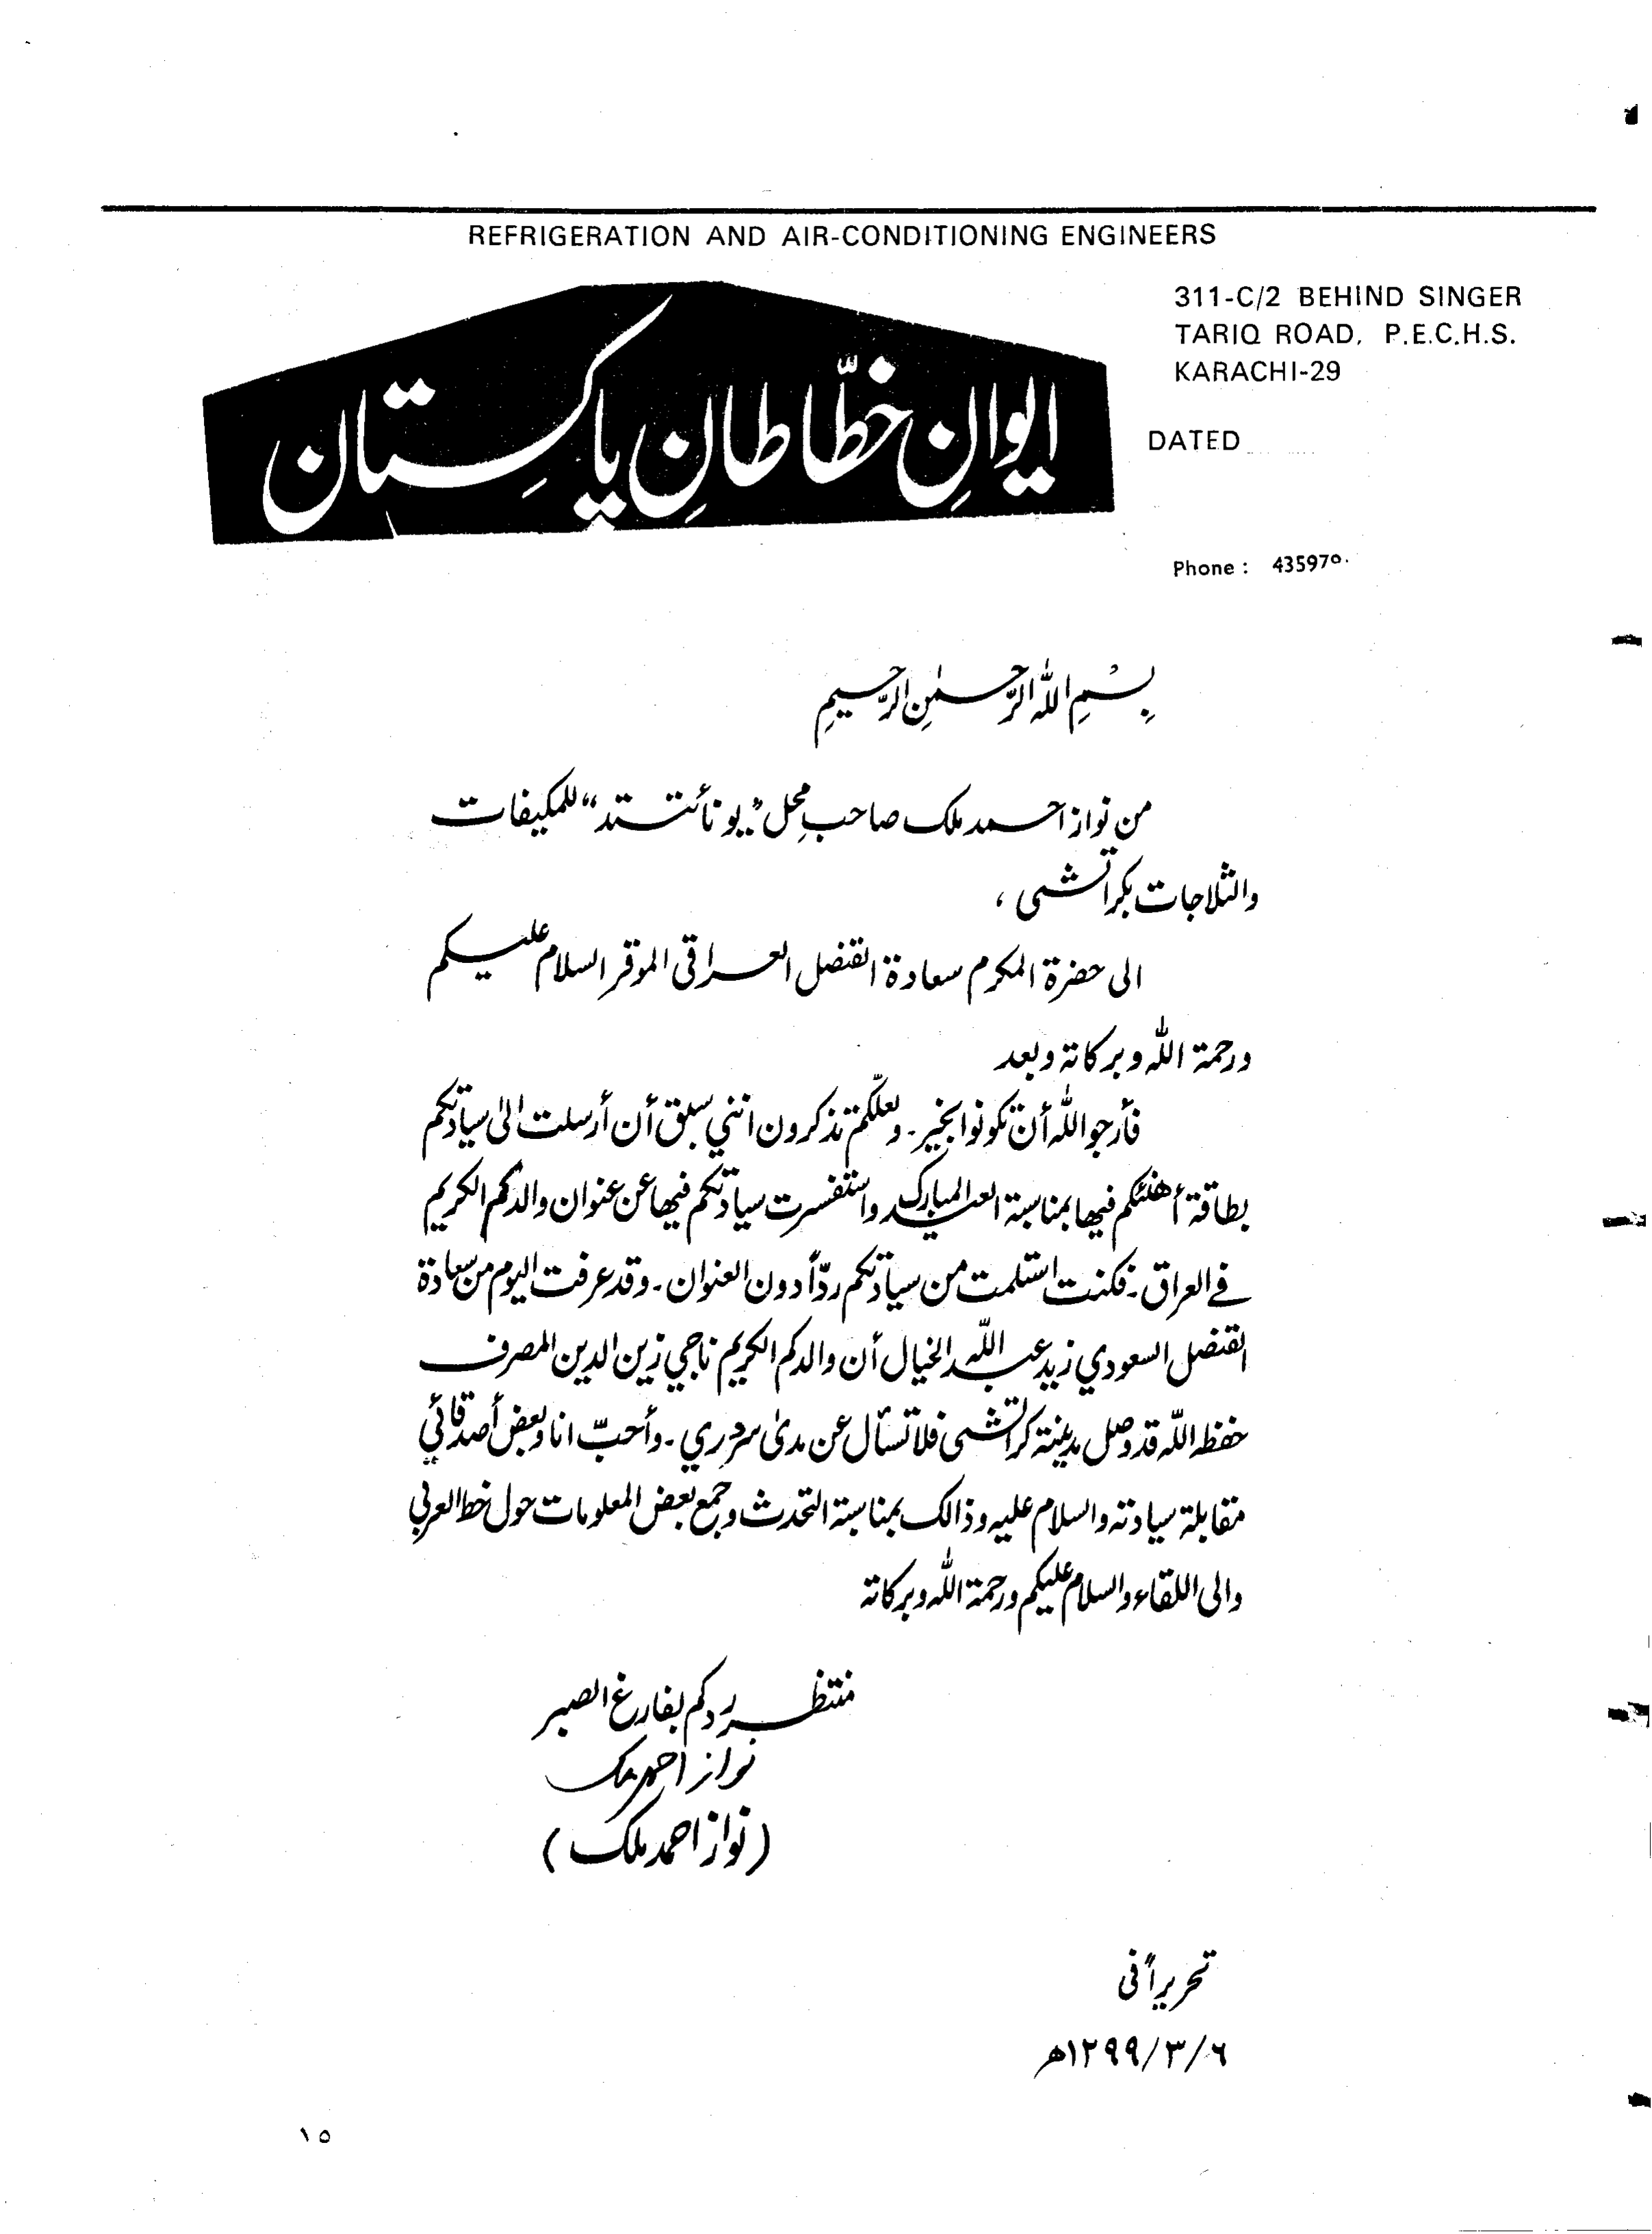 REFRIGERATION AND AIR-CONDITIONING ENGINEERS
311-C/2 BEHIND SINGER
TARIQ ROAD, P.E.C.H.S.
KARACHI-29
ایوانِ خطّاطانِ پاکستان
DATED
Phone : 435970
بِسْمِ اللّٰہِ الرَّحمٰنِ الرَّحِیمِ
من نواز احمد ملک صاحب محل "یونائتتد" للمکیفات
والثلاجات بکراتشی ،
الی حضرة المکرم سعادة القنصل العراقی الموقر السلام علیکم
ورحمة اللہ وبرکاتة وبعد
فأرجو اللہ أن تکونوا بخیر ۔ ولعلّکم تذکرون اننی سبق أن أرسلت الیٰ سیادتکم
بطاقة أهنئکم فیها بمناسبة العید المبارک واستفسرت سیادتکم فیها عن عنوان والدکم الکریم
فے العراق ۔ فکنت استلمت من سیادتکم ردّاً دون العنوان ۔ وقد عرفت الیوم من سعادة
القنصل السعودي زید عبد اللّٰہ الخیال أن والدکم الکریم ناجي زین الدین المصرف
حفظہ اللّٰہ قد وصل مدینة کراتشی فلا تسأل عن مدیٰ سروري ۔ وأحبّ انا وبعض أصدقائي
مقابلة سیادتہ والسلام علیہ وذالک بمناسبة التحدث وجمع بعض المعلومات حول خط العربي
والی اللقاء والسلام علیکم ورحمة اللہ وبرکاتة
منتظر ردکم بفارغ الصبر
نواز احمد ملک
(نواز احمد ملک)
تحریراً فی
٦/٣/١٢٩٩ھ
١٥